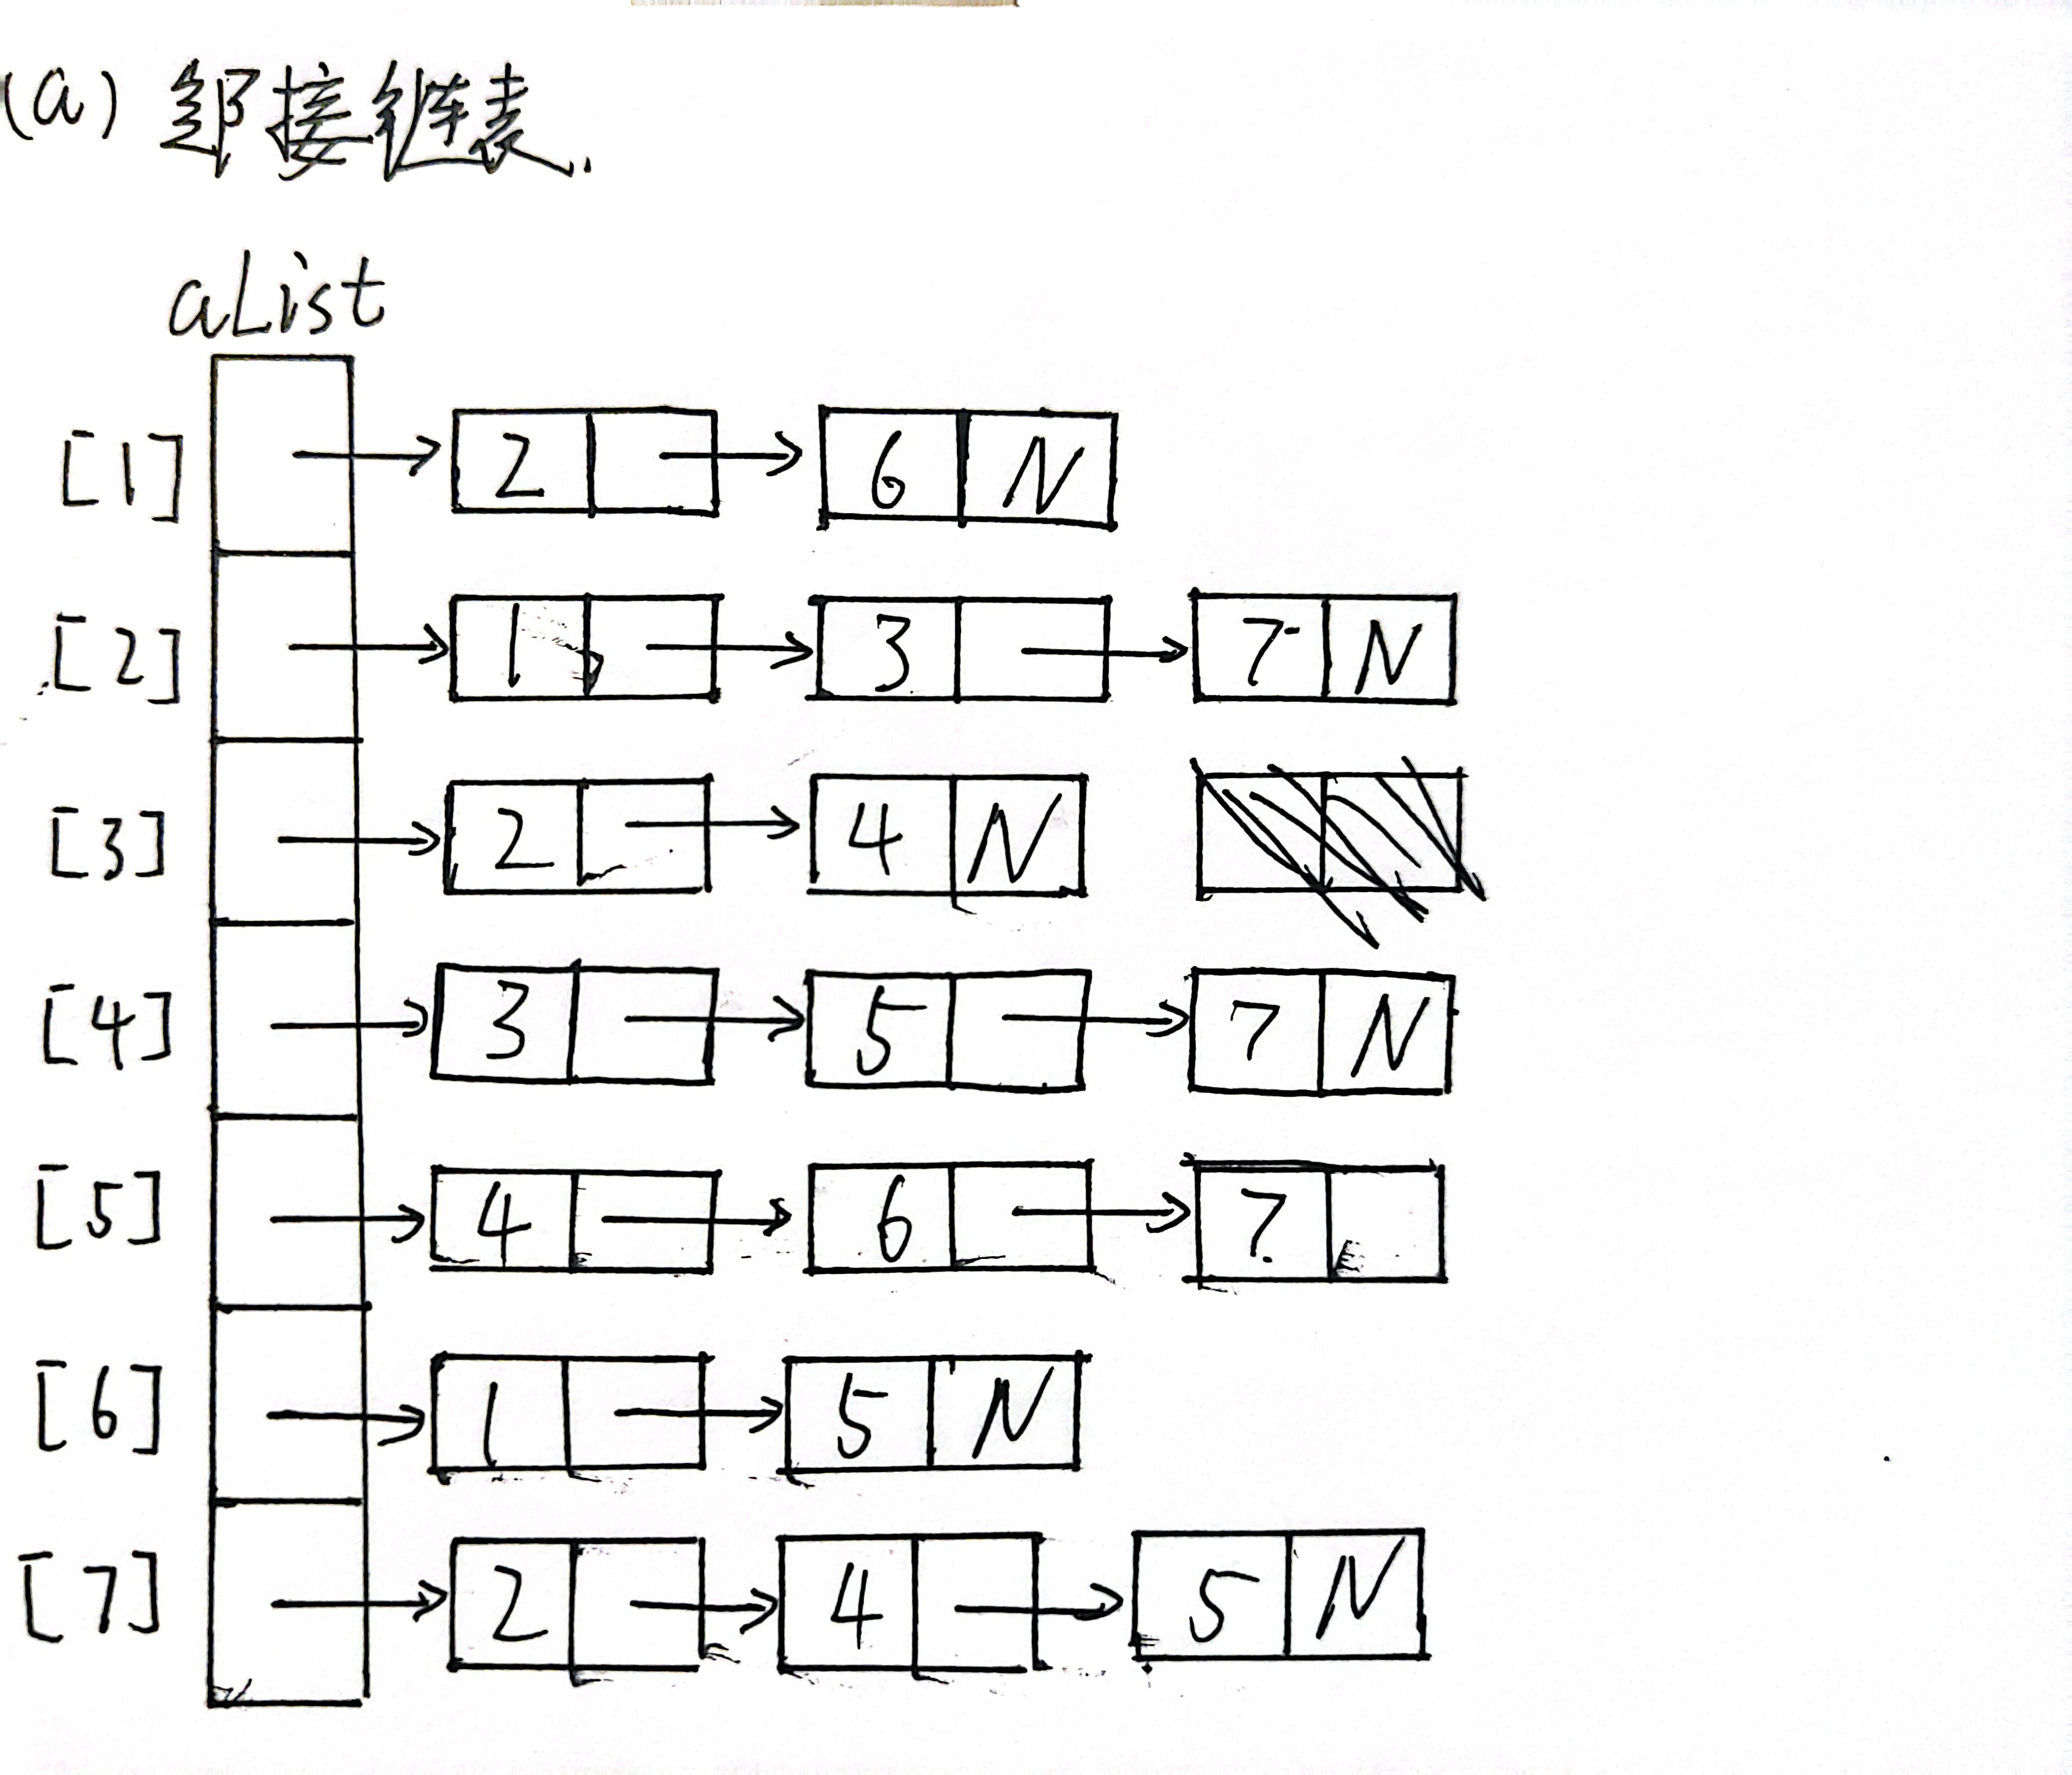 (a) 邻接链表.
aList
[1] 2 6 N
[2] 1 3 7 N
[3] 2 4 N
[4] 3 5 7 N
[5] 4 6 7
[6] 1 5 N
[7] 2 4 5 N